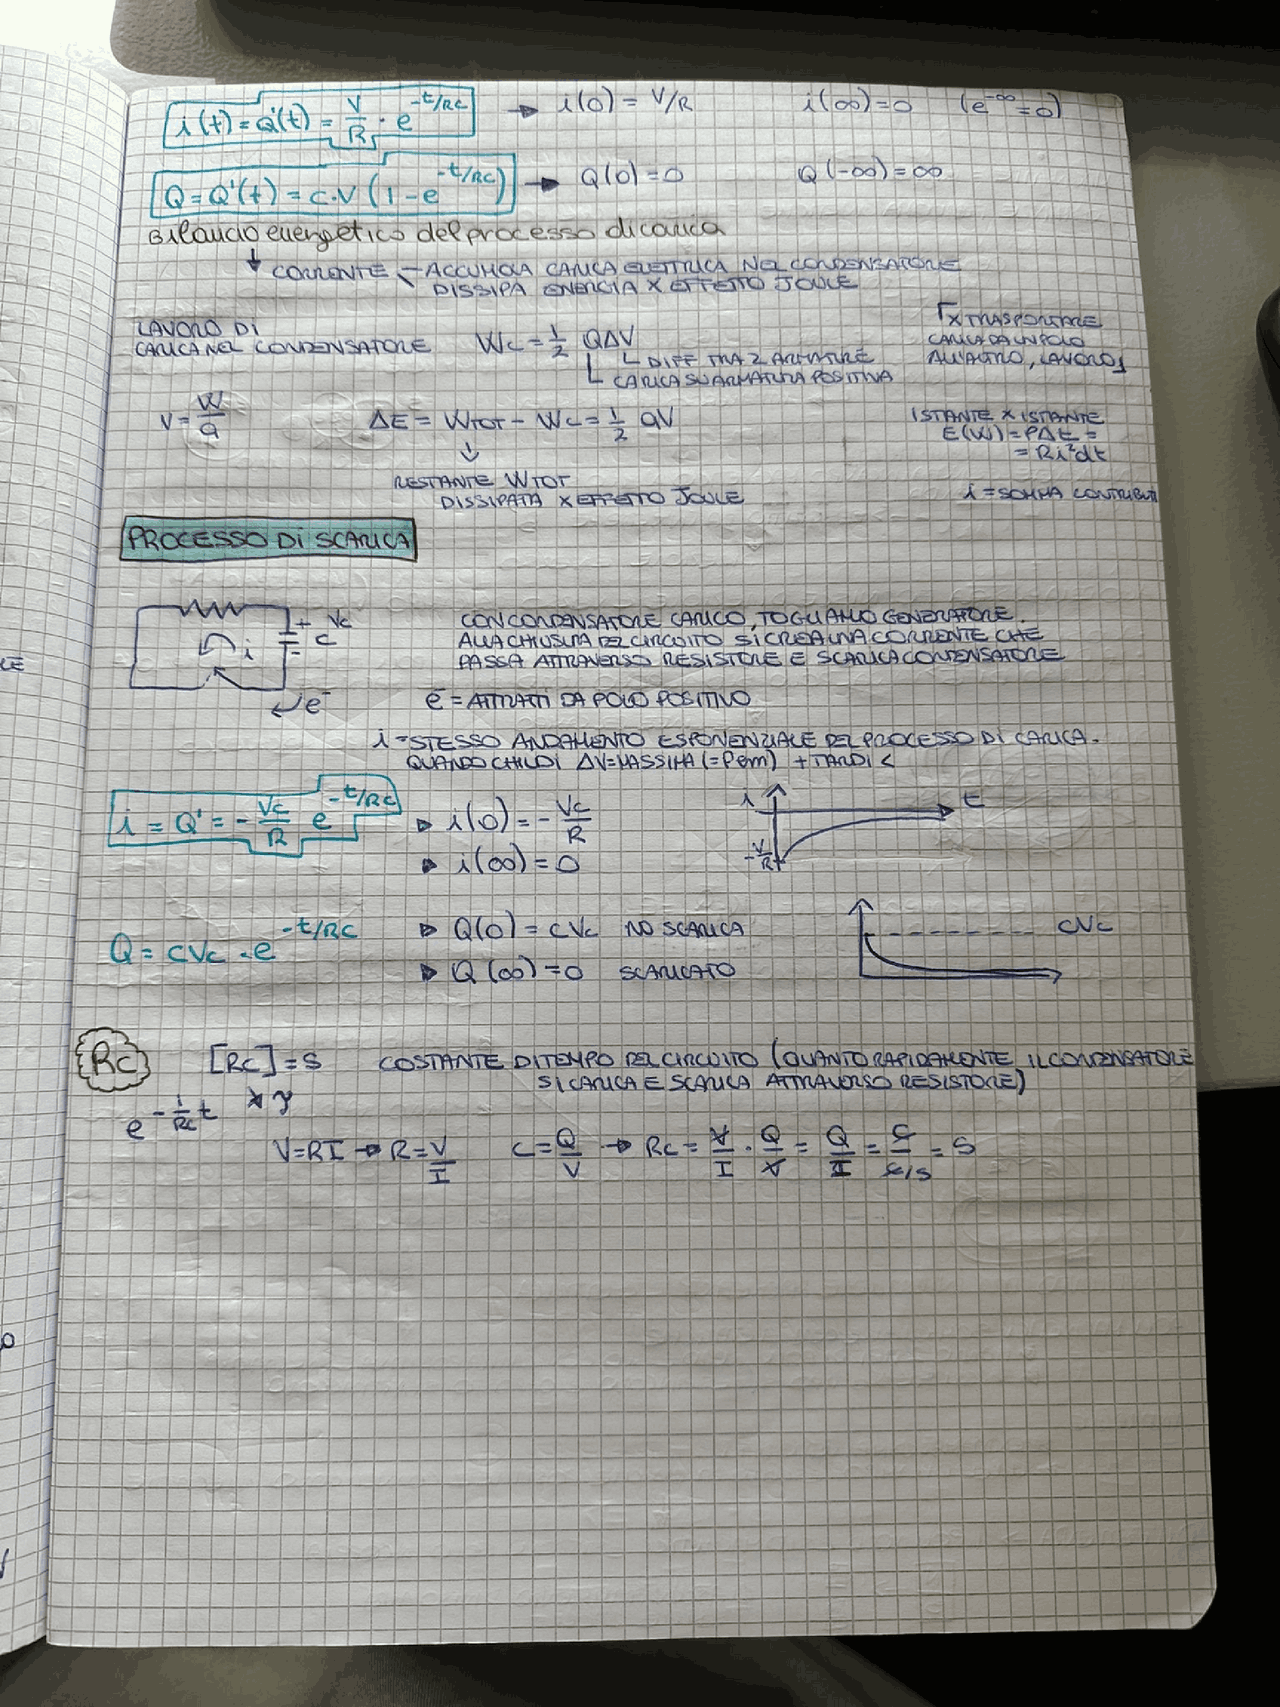 i(t) = Q'(t) = V/R · e^-t/RC → i(0) = V/R i(∞) = 0 (e^-∞ = 0)
Q = Q'(t) = C·V (1 - e^-t/RC) → Q(0) = 0 Q(-∞) = ∞
Bilancio energetico del processo di carica
↓ CORRENTE - ACCUMULA CARICA ELETTRICA NEL CONDENSATORE
DISSIPA ENERGIA X EFFETTO JOULE
LAVORO DI
CARICA NEL CONDENSATORE Wc = 1/2 QΔV
DIFF TRA 2 ARMATURE
CARICA SU ARMATURA POSITIVA
X TRASPORTARE
CARICA DA UN POLO
ALL'ALTRO, LAVORO
V = W/Q ΔE = WTOT - Wc = 1/2 QV
↓
RESTANTE WTOT
DISSIPATA X EFFETTO JOULE
ISTANTE X ISTANTE
E(W) = PΔt =
= Ri²dt
i = SOMMA CONTRIBUTI
PROCESSO DI SCARICA
+ Vc
C
i
e⁻
CON CONDENSATORE CARICO, TOGLIAMO GENERATORE.
ALLA CHIUSURA DEL CIRCUITO SI CREA UNA CORRENTE CHE
PASSA ATTRAVERSO RESISTORE E SCARICA CONDENSATORE
e⁻ = ATTRATTI DA POLO POSITIVO
i = STESSO ANDAMENTO ESPONENZIALE DEL PROCESSO DI CARICA.
QUANDO CHIUDI ΔV = MASSIMA (= fem) + TARDI <
i = Q' = - Vc/R e^-t/RC ▶ i(0) = - Vc/R
▶ i(∞) = 0
i t
-V/R
Q = CVc · e^-t/RC ▶ Q(0) = CVc NO SCARICA
▶ Q(∞) = 0 SCARICATO
CVc
RC [RC] = S COSTANTE DI TEMPO DEL CIRCUITO (QUANTO RAPIDAMENTE IL CONDENSATORE
SI CARICA E SCARICA ATTRAVERSO RESISTORE)
e^-1/RC t
V = RI → R = V/I C = Q/V → RC = V/I · Q/V = Q/I = C/C/S = S